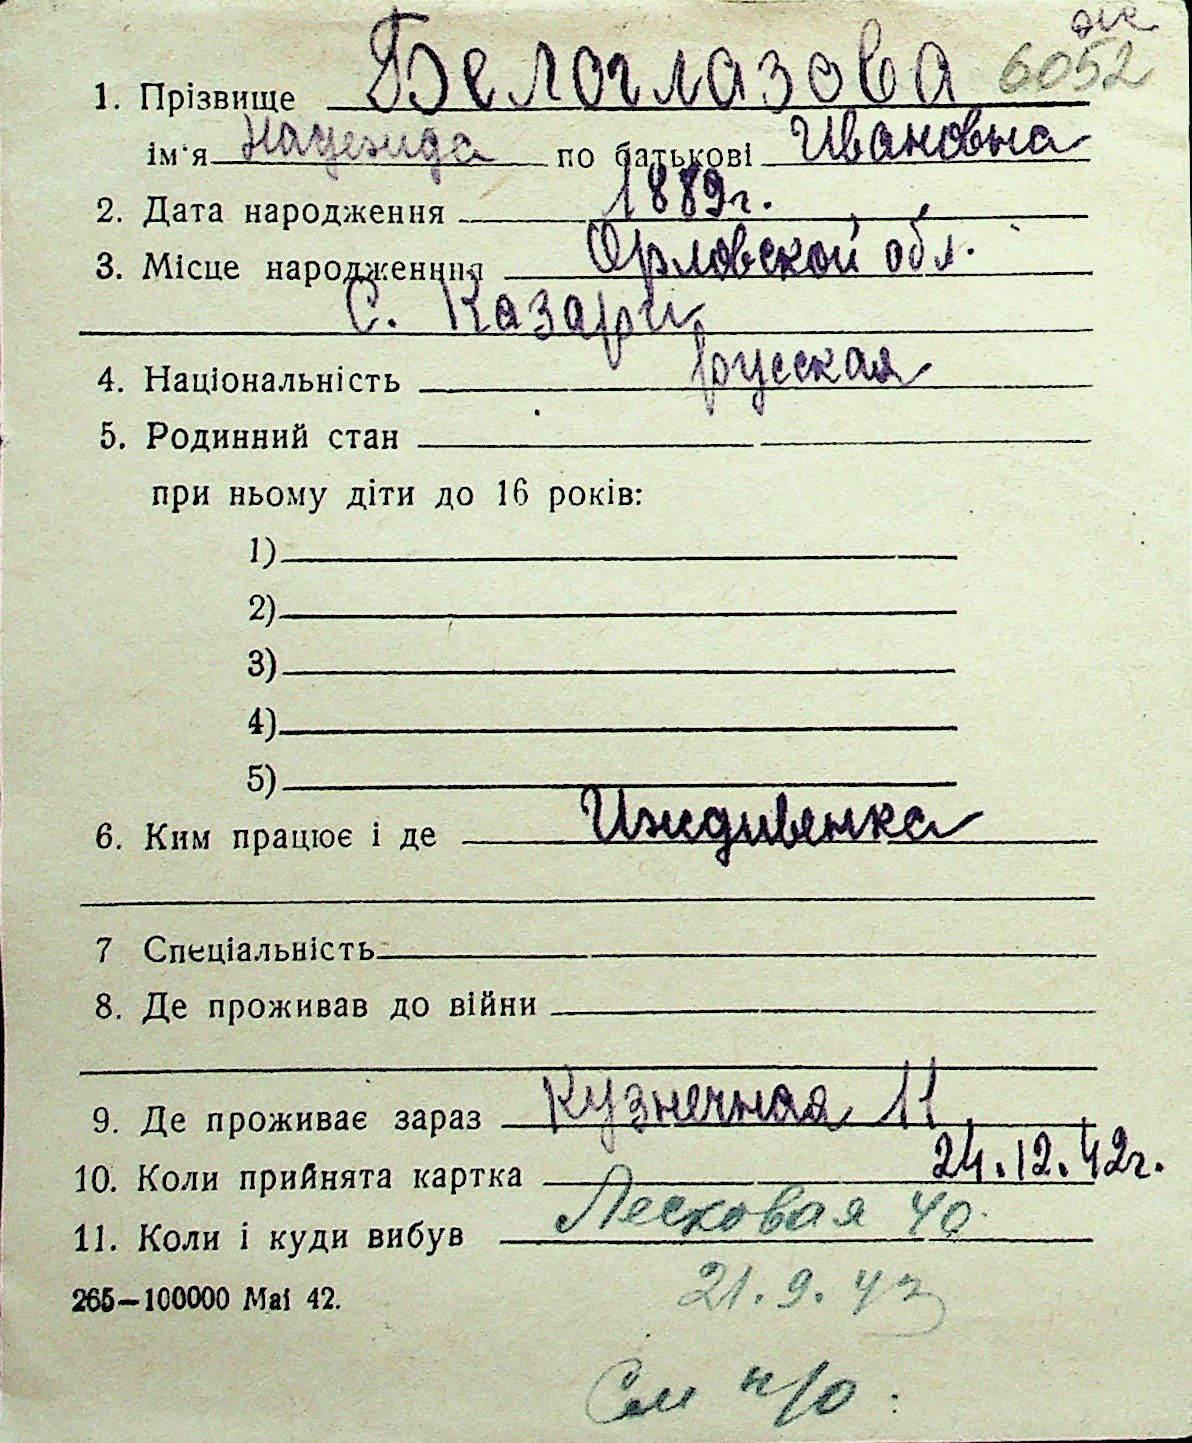 же
1. Прізвище Белоглазова 6052
ім'я Надежида по батькові Ивановна
2. Дата народження 1889г.
3. Місце народженння Орловской обл.
С. Казари
4. Національність русская
5. Родинний стан
при ньому діти до 16 років:
1)
2)
3)
4)
5)
6. Ким працює і де Иждивенка
7 Спеціальність
8. Де проживав до війни
9. Де проживає зараз Кузнечная 11
10. Коли прийнята картка 24.12.42г.
11. Коли і куди вибув Лесковая 40
265—100000 Mai 42.
21.9.43
См н/о